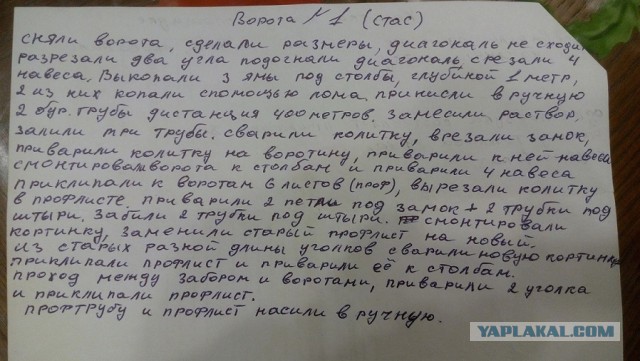 Ворота №1 (Стас)
сняли ворота, сделали размеры, диагональ не сходи
разрезали два угла подогнали диагональ, срезали 4
навеса. Выкопали 3 ямы под столбы, глубиной 1 метр,
2 из них копали спомощью лома. принисли в ручную
2 бур. трубы дистанция 400 метров. Замесили раствор,
залили три трубы. сварили колитку, врезали замок,
приварили колитку на воротину, приварили к ней навеса
смонтировали ворота к столбам и приварили 4 навеса
приклипали к воротам 6 листов (проф), вырезали колитку
в профлисте. приварили 2 петли под замок + 2 трубки под
штыри. Забили 2 трубки под штыри. смонтировали
кортинку, заменили старый профлист на новый.
из старых разной длины уголков сварили новую кортинку
приклипали профлист и приварили её к столбам.
проход между забором и воротами, приварили 2 уголка
и приклипали профлист.
профтрубу и профлист насили в ручную.
YAPLAKAL.COM